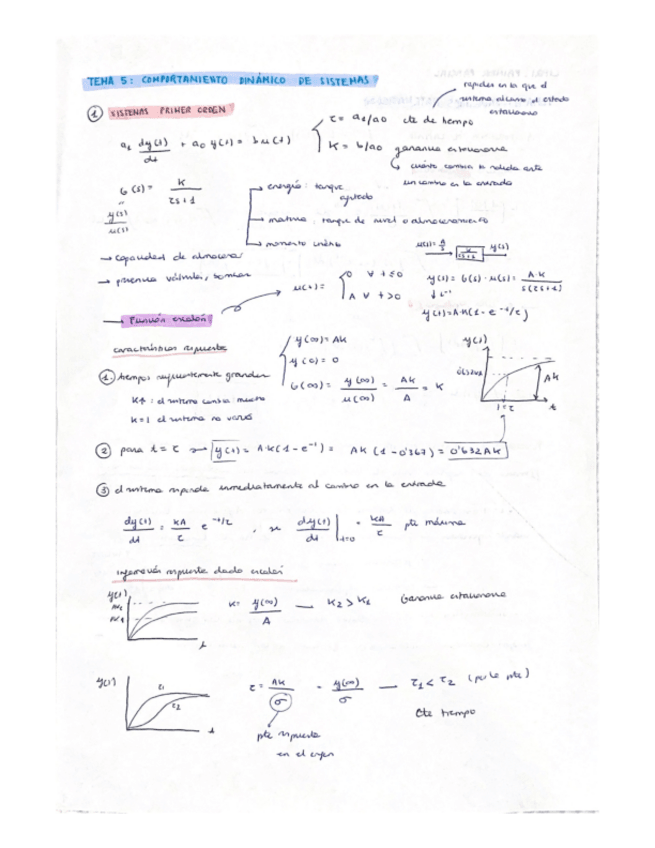 TEMA 5: COMPORTAMIENTO DINÁMICO DE SISTEMAS
① SISTEMAS PRIMER ORDEN
rapidez en la que el
sistema alcanza el estado
estacionario
a₁ dy(t)/dt + a₀ y(t) = b u(t)
τ = a₁/a₀ cte de tiempo
K = b/a₀ ganancia estacionaria
cuánto cambia la salida ante
un cambio en la entrada
G(s) = K/(τs+1)
y(s)/u(s)
energía: tanque agitado
materia: tanque de nivel o almacenamiento
momento
→ capacidad de almacenar
→ válvulas, bombas
u(s) = A/s → K/(τs+1) → y(s)
u(t) = { 0 ∀ t≤0
A ∀ t>0
y(s) = G(s)·u(s) = A·K/(s(τs+1))
↓ L⁻¹
y(t) = A·K(1-e^(-t/τ))
→ Función escalón
características respuesta
① tiempos suficientemente grandes
K↑: el sistema cambia mucho
K=1 el sistema no varía
y(∞) = AK
y(0) = 0
G(∞) = y(∞)/u(∞) = AK/A = K
y(t)
AK
t=τ
t
② para t = τ → y(t) = A·K(1-e⁻¹) = AK(1-0'367) = 0'632AK
③ el sistema responde inmediatamente al cambio en la entrada
dy(t)/dt = KA/τ e^(-t/τ), dy(t)/dt |t=0 = KA/τ pte máxima
respuesta dado escalón
y(t)
AK₂
AK₁
t
K = y(∞)/A — K₂ > K₁ Ganancia estacionaria
y(t)
τ₁
τ₂
t
τ = AK/σ = y(∞)/σ — τ₁ < τ₂ (por la pte)
Cte tiempo
pte respuesta
en el origen